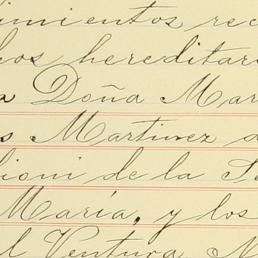 imientos rec
hos hereditari
a Doña Mar
s Martinez
lioni de la
María, y los
l Ventura